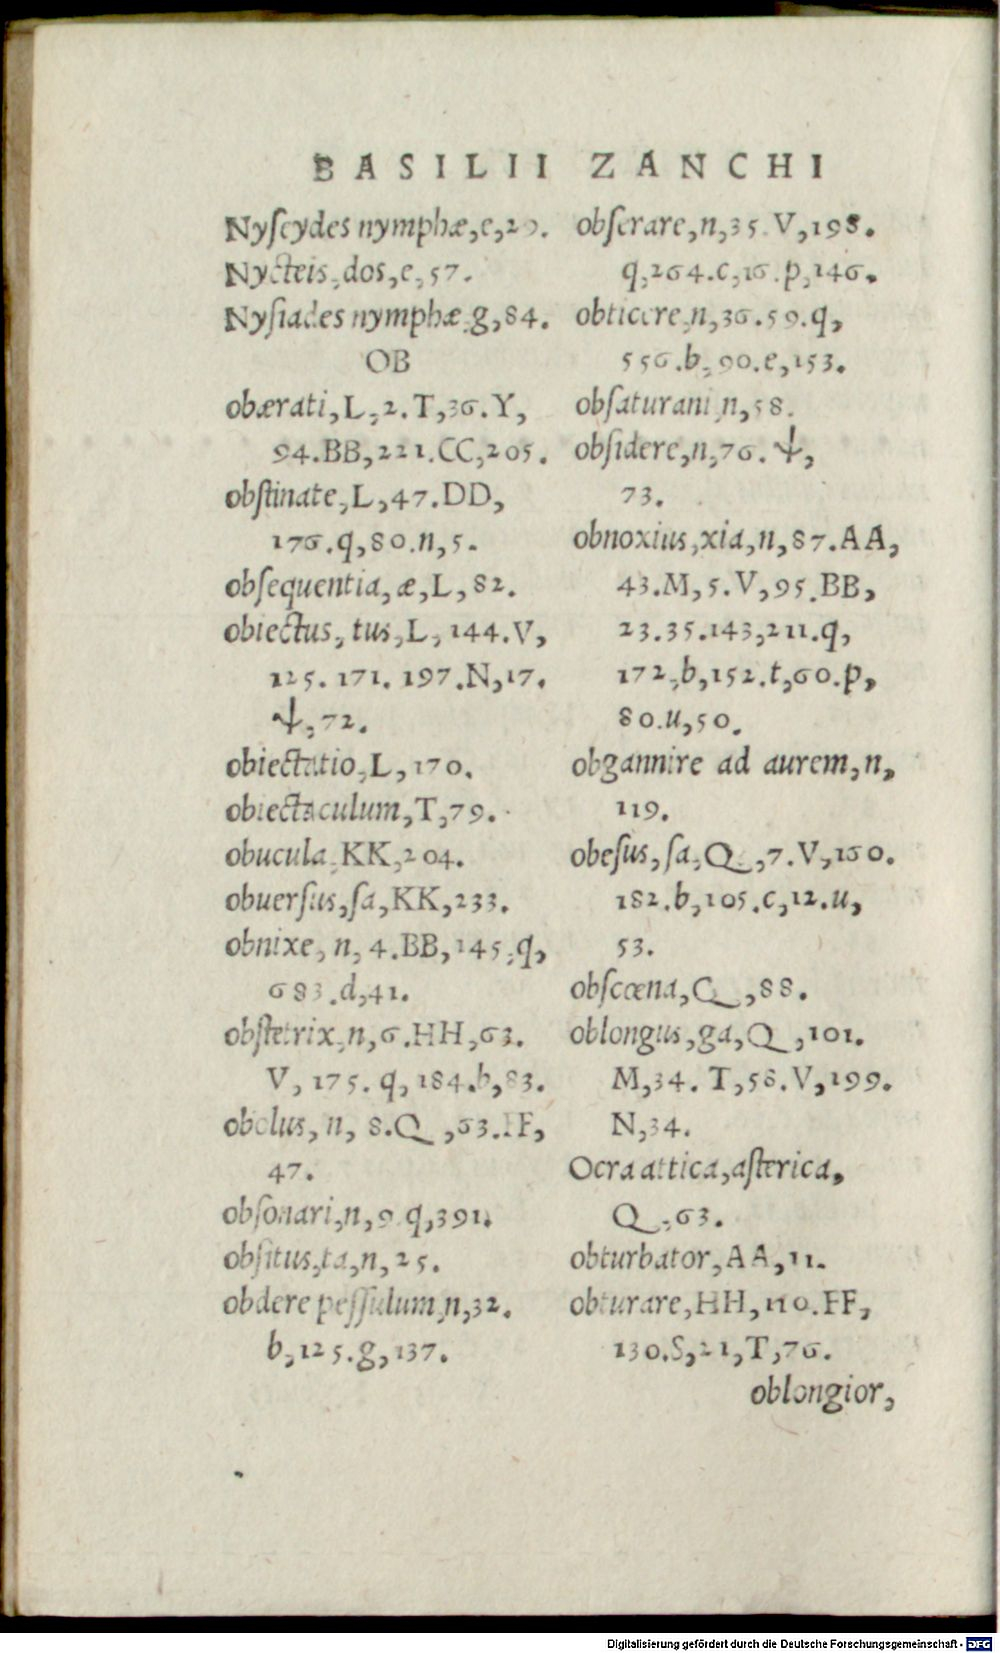 BASILII ZANCHI
Nyſeydes nymphæ,e,29.
Nycteis,dos,e,57.
Nyſiades nymphæ,g,84.
OB
obærati,L,2.T,36.Y,
94.BB,221.CC,205.
obſtinate,L,47.DD,
176.q,80.n,5.
obſequentia,æ,L,82.
obiectus,tus,L,144.V,
125.171.197.N,17.
ψ,72.
obiectatio,L,170.
obiectaculum,T,79.
obucula,KK,204.
obuerſus,ſa,KK,233.
obnixe,n,4.BB,145.q,
683.d,41.
obſtetrix,n,6.HH,63.
V,175.q,184.b,83.
obolus,n,8.Q,63.FF,
47.
obſonari,n,9.q,391.
obſitus,ta,n,25.
obdere peſſulum,n,32.
b,125.g,137.
obſerare,n,35.V,198.
q,264.c,16.p,146.
obticere,n,36.59.q,
556.b,90.e,153.
obſaturani,n,58.
obſidere,n,76.ψ,
73.
obnoxius,xia,n,87.AA,
43.M,5.V,95.BB,
23.35.143,211.q,
172,b,152.t,60.p,
80.u,50.
obgannire ad aurem,n,
119.
obeſus,ſa,Q,7.V,160.
182.b,105.c,12.u,
53.
obſcœna,Q,88.
oblongus,ga,Q,101.
M,34.T,58.V,199.
N,34.
Ocra attica,aſterica,
Q,63.
obturbator,AA,11.
obturare,HH,110.FF,
130.S,21,T,76.
oblongior,
Digitalisierung gefördert durch die Deutsche Forschungsgemeinschaft - DFG